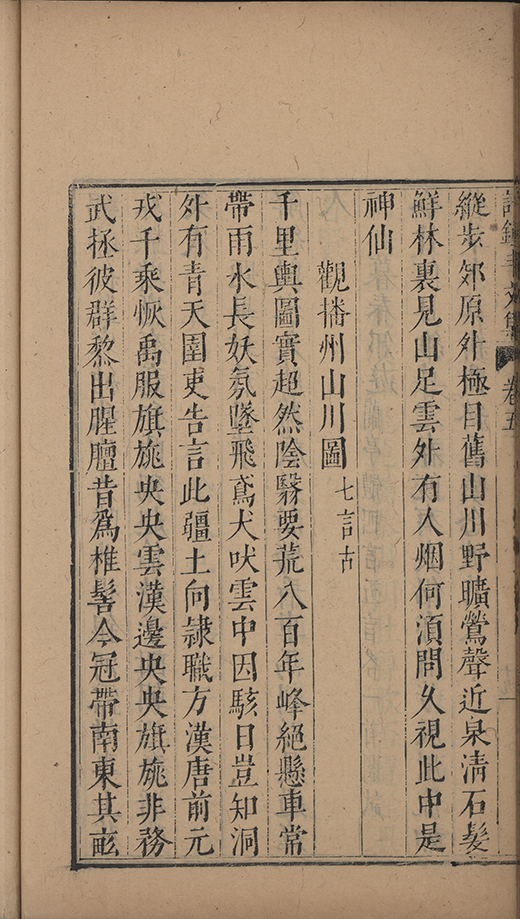 卷五
縱步郊原外極目舊山川野曠鶯聲近泉清石髮
鮮林裏見山足雲外有人烟何湏問久視此中是
神仙
觀播州山川圖 七言古
千里輿圖實超然陰翳要荒八百年峰絕懸車常
帶雨水長妖氛墜飛鳶犬吠雲中因駭日豈知洞
外有青天圉吏告言此疆土向隷職方漢唐前元
戎千乘恢禹服旗旐央央雲漢邊央央旗旐非務
武拯彼群黎出腥膻昔爲椎髻今冠帶南東其畝